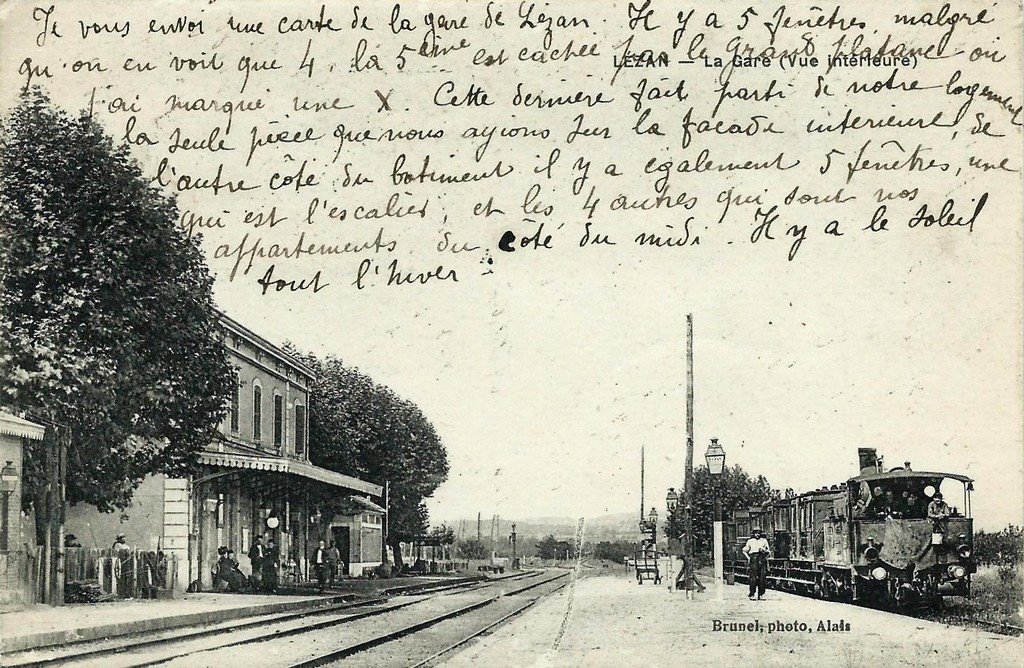 Je vous envoi une carte de la gare de Lézan. Il y a 5 fenêtres, malgré
qu'on en voit que 4, la 5ème est cachée par le Grand platane où
LÉZAN — La Gare (Vue intérieure)
j'ai marqué une X. Cette dernière fait parti de notre logement
la seule pièce que nous ayions sur la façade intérieure, de
l'autre côté du batiment il y a également 5 fenêtres, une
qui est l'escalier, et les 4 autres qui sont nos
appartements du côté du midi. Il y a le soleil
tout l'hiver.
Brunel, photo, Alais